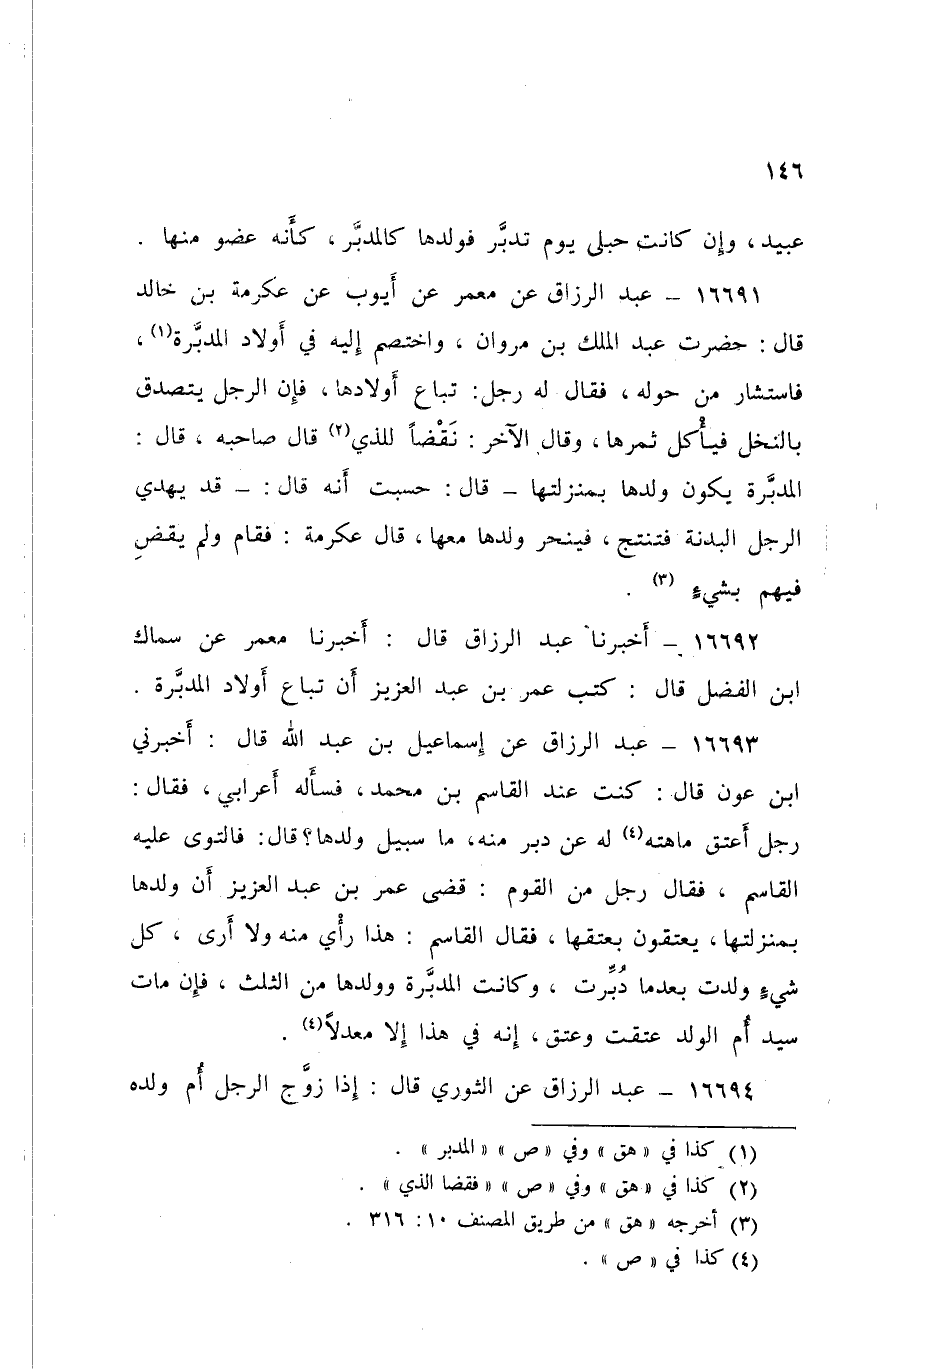 ١٤٦
عبيد ، وإن كانت حبلى يوم تدبَّر فولدها كالمدبَّر ، كأَنه عضو منها .
١٦٦٩١ – عبد الرزاق عن معمر عن أَيوب عن عكرمة بن خالد
قال : حضرت عبد الملك بن مروان ، واختصم إليه في أَولاد المدبَّرة(١) ،
فاستشار من حوله ، فقال له رجل : تباع أَولادها ، فإن الرجل يتصدق
بالنخل فيأْكل ثمرها ، وقال الآخر : نَقْضاً للذي(٢) قال صاحبه ، قال :
المدبَّرة يكون ولدها بمنزلتها – قال : حسبت أَنه قال : – قد يهدي
الرجل البدنة فتنتج ، فينحر ولدها معها ، قال عكرمة : فقام ولم يقضِ
فيهم بشيءٍ (٣) .
١٦٦٩٢ – أَخبرنا عبد الرزاق قال : أَخبرنا معمر عن سماك
ابن الفضل قال : كتب عمر بن عبد العزيز أَن تباع أَولاد المدبَّرة .
١٦٦٩٣ – عبد الرزاق عن إسماعيل بن عبد الله قال : أَخبرني
ابن عون قال : كنت عند القاسم بن محمد ، فسأَله أَعرابي ، فقال :
رجل أَعتق ماهته(٤) له عن دبر منه، ما سبيل ولدها؟ قال : فالتوى عليه
القاسم ، فقال رجل من القوم : قضى عمر بن عبد العزيز أَن ولدها
بمنزلتها ، يعتقون بعتقها ، فقال القاسم : هذا رأْي منه ولا أَرى ، كل
شيءٍ ولدت بعدما دُبِّرت ، وكانت المدبَّرة وولدها من الثلث ، فإن مات
سيد أُم الولد عتقت وعتق ، إنه في هذا إلا معدلاً(٤) .
١٦٦٩٤ – عبد الرزاق عن الثوري قال : إذا زوَّج الرجل أُم ولده
(١) كذا في « هق » وفي « ص » « المدبر » .
(٢) كذا في « هق » وفي « ص » « فقضا الذي » .
(٣) أخرجه « هق » من طريق المصنف ١٠ : ٣١٦ .
(٤) كذا في « ص » .